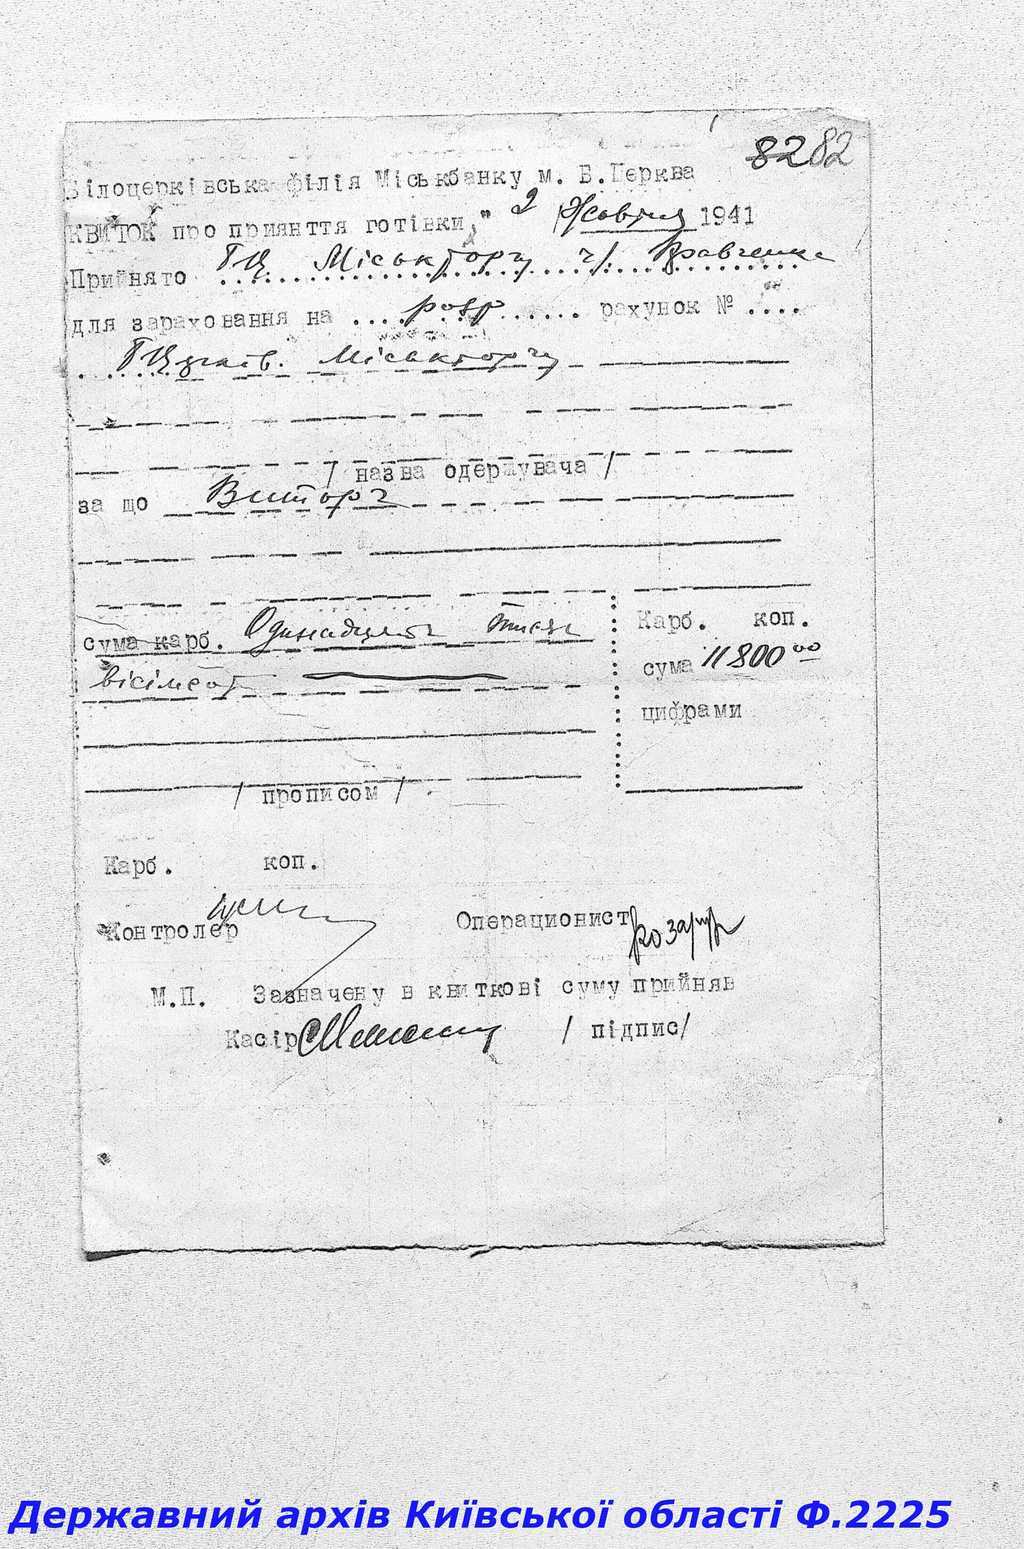 82 82
Білоцерківська філія Міськбанку м. Б.Церква
КВИТОК про прияння готівки " 2 " Жовтня 1941
Прийнято Міськторгу ч/ Кравченка
для зараховання на розр рахунок №
Міськторгу
/ назва одержувача /
за що Виторг
сума карб. Одинадцять тисяч
вісімсот
Карб. коп.
сума 11800 00
цифрами
/ прописом /
Карб. коп.
Контролер Операционист
М.П. Зазначену в квиткові суму прийняв
Касір / підпис/
Державний архів Київської області Ф.2225